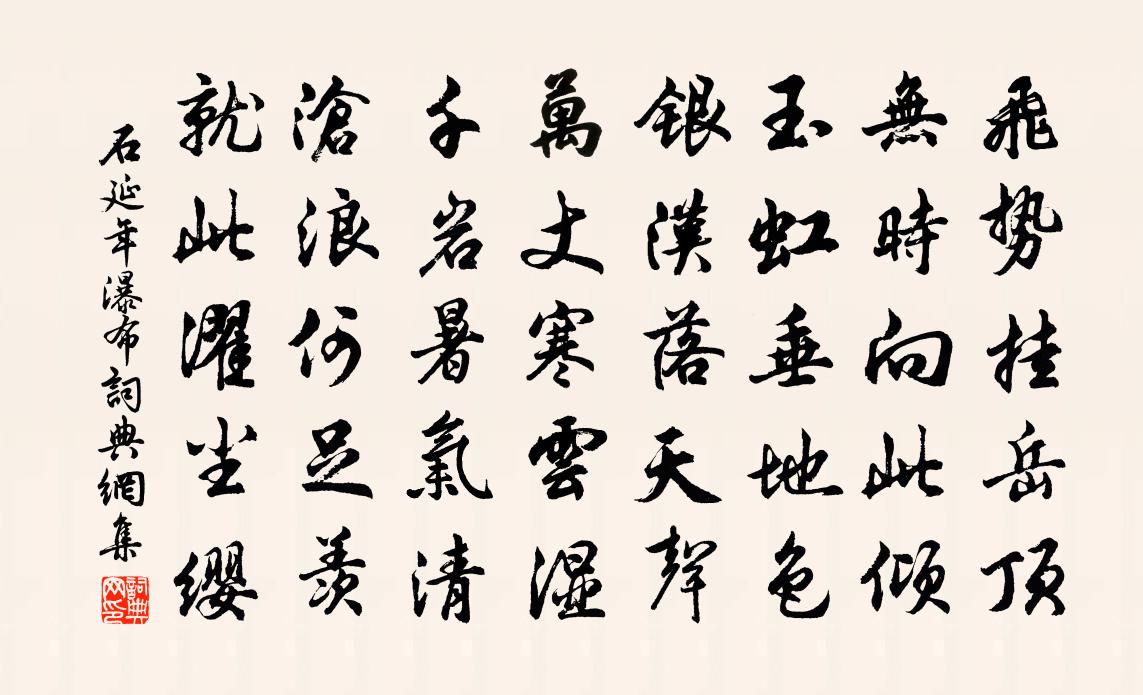 飛勢挂岳頂
無時向此傾
玉虹垂地色
銀漢落天聲
萬丈寒雲湿
千岩暑氣清
滄浪何足羨
就此濯尘纓
石延年瀑布詞典網集
詞典网印